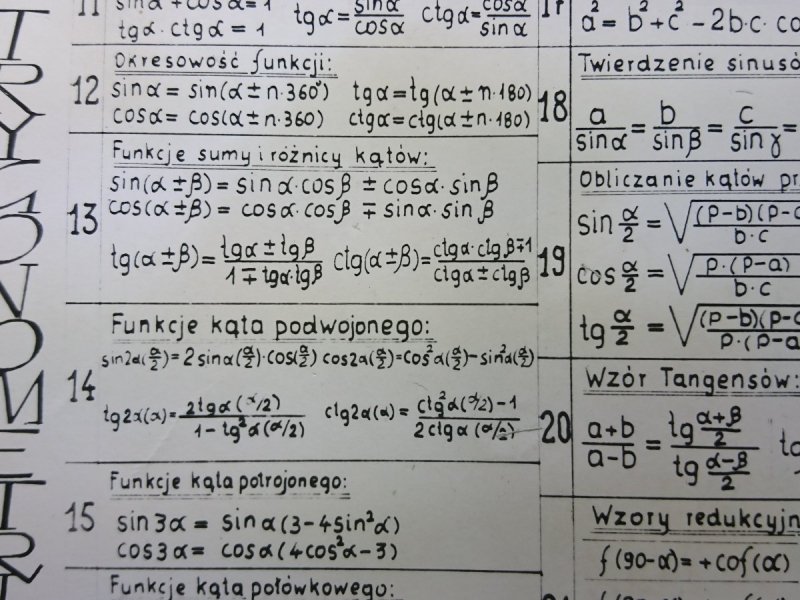 T
R
Y
G
O
N
O
M
E
T
R
11 sin²α + cos²α = 1
tgα · ctgα = 1
tgα = sinα/cosα ctgα = cosα/sinα
12 Okresowość funkcji:
sinα = sin(α ± n·360°) tgα = tg(α ± n·180)
cosα = cos(α ± n·360) ctgα = ctg(α ± n·180)
13 Funkcje sumy i różnicy kątów:
sin(α ± β) = sinα·cosβ ± cosα·sinβ
cos(α ± β) = cosα·cosβ ∓ sinα·sinβ
tg(α ± β) = tgα ± tgβ / 1 ∓ tgα·tgβ ctg(α ± β) = ctgα·ctgβ ∓ 1 / ctgα ± ctgβ
14 Funkcje kąta podwojonego:
sin2α(α/2) = 2 sinα(α/2)·cos(α/2) cos2α(α/2) = cos²α(α/2) − sin²α(α/2)
tg2α(α) = 2tgα(α/2) / 1 − tg²α(α/2) ctg2α(α) = ctg²α(α/2) − 1 / 2ctgα(α/2)
15 Funkcje kąta potrojonego:
sin3α = sinα(3 − 4sin²α)
cos3α = cosα(4cos²α − 3)
Funkcje kąta połówkowego:
17 a² = b² + c² − 2b·c·
18 Twierdzenie
a/sinα = b/sinβ = c/sinγ =
19 Obliczanie kątów
sin α/2 = √(p−b)(p− / b·c
cos α/2 = √p·(p−a) / b·c
tg α/2 = √(p−b)(p− / p·(p−a
20 Wzór Tangensów:
a+b / a−b = tg α+β/2 / tg α−β/2
Wzory
f(90−α) = + cof(α)